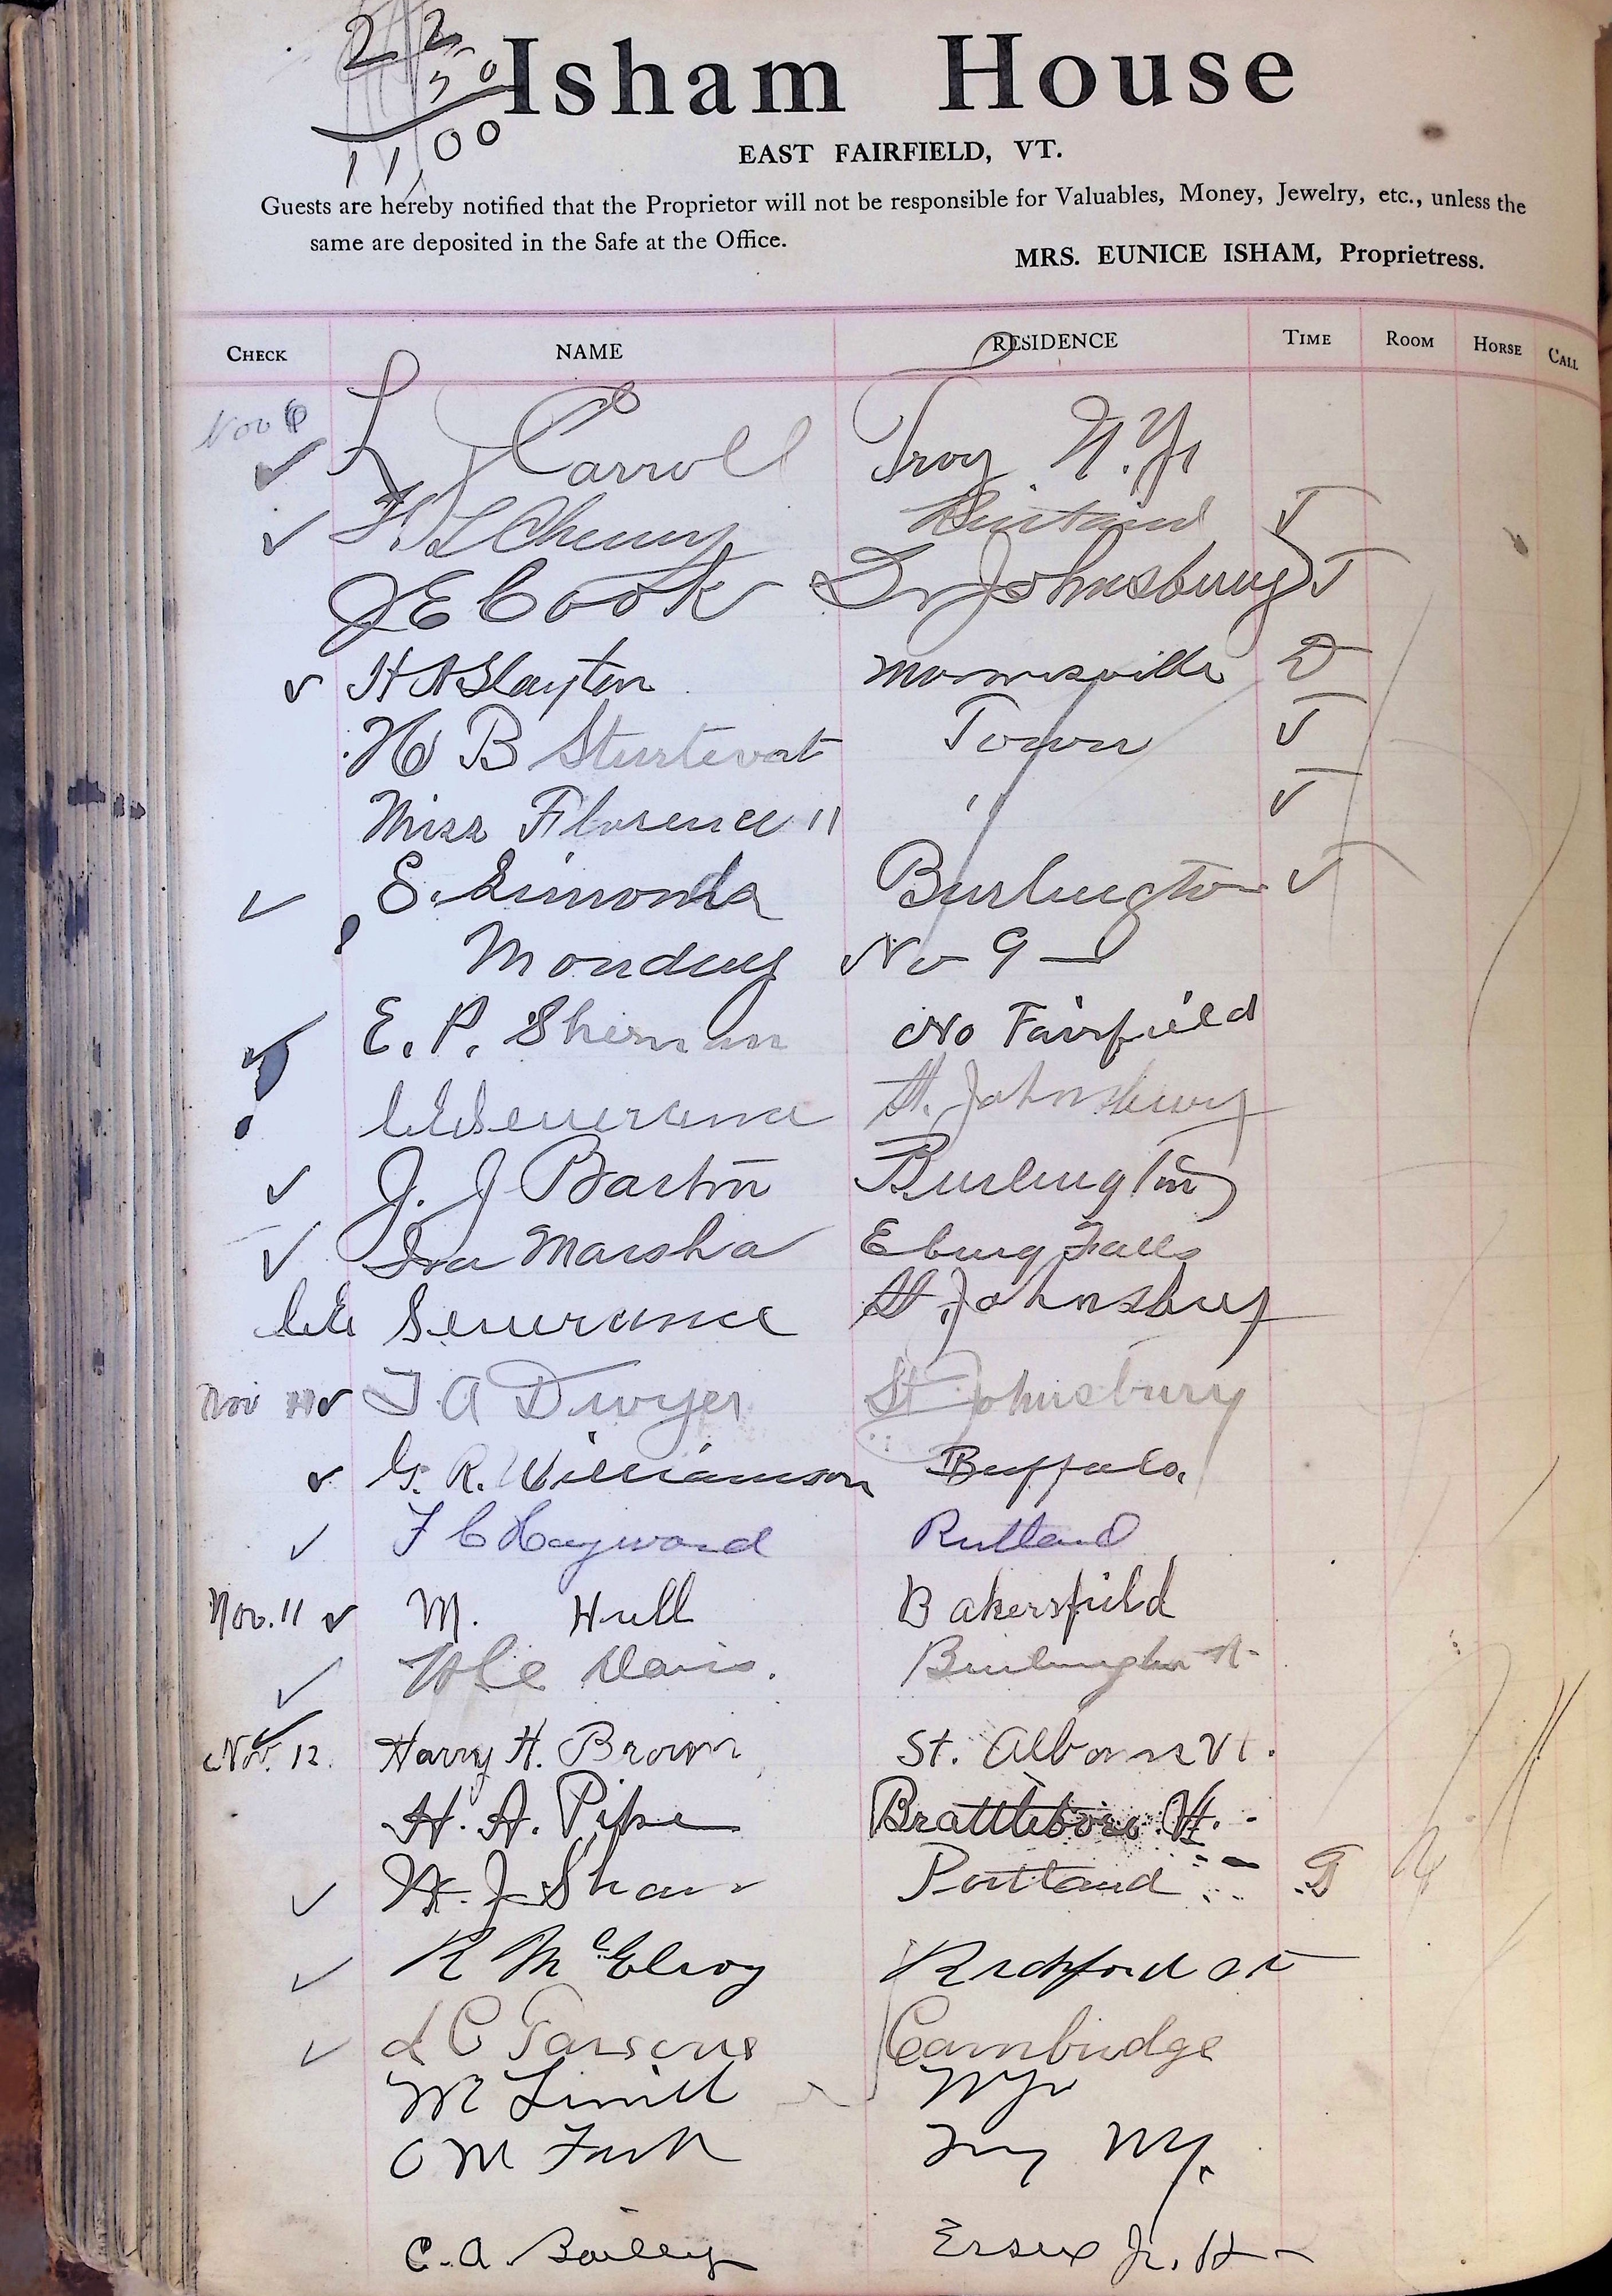 2 2
50
11 00
Isham House
EAST FAIRFIELD, VT.
Guests are hereby notified that the Proprietor will not be responsible for Valuables, Money, Jewelry, etc., unless the
same are deposited in the Safe at the Office.
MRS. EUNICE ISHAM, Proprietress.
CHECK NAME RESIDENCE TIME ROOM HORSE CALL
Nov 6
Carroll Troy N.Y.
Rutland
J E Cook St Johnsbury
H A Slayton Morrisville D
H B Sturtevat Town
Miss Florence " "
S. Simonds Burlington
Monday Nov 9
E. P. Sherman No Fairfield
C E Severance St. Johnsbury
J. J Barton Burlington
Ira Marsha Eburg Falls
C E Severance St. Johnsbury
Nov T A Dwyer St Johnsbury
G. R. Williamson Buffalo.
F C Hayward Rutland
Nov. 11 M. Hull Bakersfield
Davis. Burlington Vt
Nov. 12. Harry H. Brown St. Albans Vt.
H. A. Pike Brattleboro Vt.
J Shaw Portland
R McElroy Richford Vt
L C Parsons Cambridge
NY
C M Troy NY.
C. A. Bailey Essex Jc. Vt